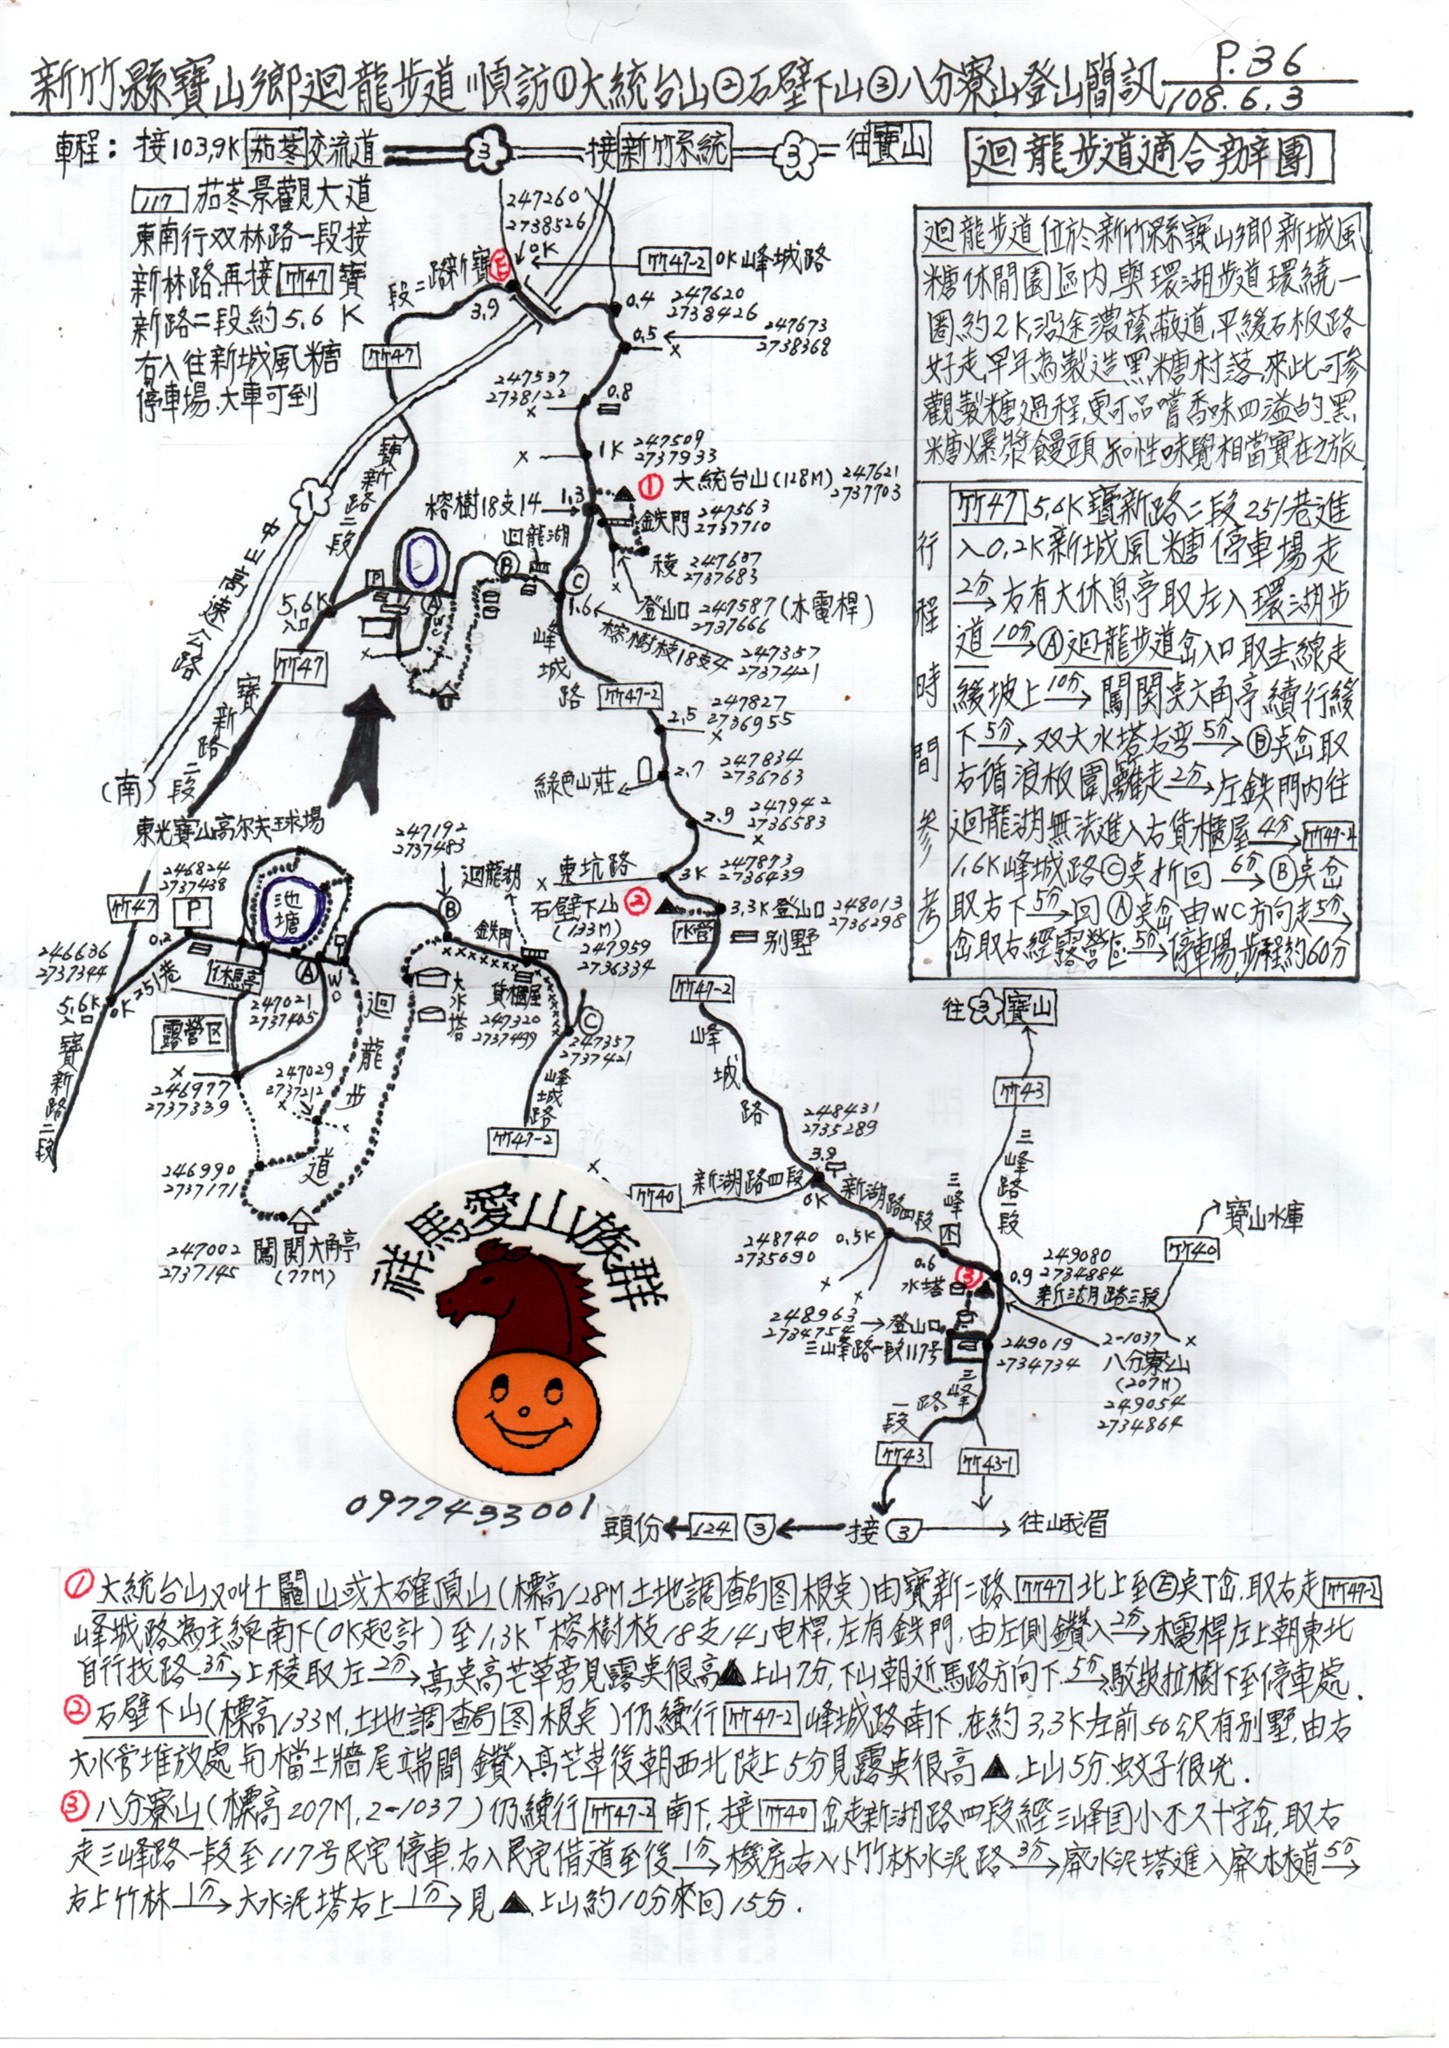 新竹縣寶山鄉迴龍步道順訪①大統台山②石壁下山③八分寮山登山簡訊
P.36
108.6.3
車程：接103.9K茄苳交流道
3
接新竹系統
3
往寶山
迴龍步道適合辦團
117 茄苳景觀大道
東南行双林路一段接
新林路再接竹47寶
新路二段約5.6K
右入往新城風糖
停車場.大車可到
迴龍步道位於新竹縣寶山鄉新城風
糖休閒園區内與環湖步道環繞一
圈約2K,沿途濃蔭蔽道,平緩石板路
好走,早年為製造黑糖村落,來此可參
觀製糖過程,更可品嚐香味四溢的黑
糖爆漿饅頭,知性味覺相當實在之旅
行程時間參考
竹47 5.6K寶新路二段251巷進
入0.2K新城風糖停車場走
2分→右有大休息亭取左入環湖步
道10分→Ⓐ迴龍步道岔入口取主線走
緩坡上10分→闖関桌六角亭續行緩
下5分→双大水塔右弯5分→Ⓑ桌岔取
右循浪板圍籬走2分→左鉄門内往
迴龍湖無法進入右貨櫃屋4分→竹47-2
1.6K峰城路Ⓒ桌折回6分→Ⓑ桌岔
取右下5分→回Ⓐ桌岔由WC方向走5分→
岔取右經露營區5分→停車場步程約60分
247260
2738526
0K
竹47-2 0K峰城路
段二路新寶
E
3.9
0.4
247620
2738426
0.5
247673
2738368
竹47
247537
2738122
0.8
1K
247509
2737933
① 大統台山(128M)
247621
2737703
榕樹18支14
1.3
鉄門
247563
2737710
迴龍湖
稜
247637
2737683
登山口
247587(木電桿)
2737666
榕樹枝18支4
247357
2737421
寶新路二段
1
中山高速公路
(南)
5.6K
入口
P
A
WC
B
C
1.6
峰城路
竹47
寶新路二段
竹47-2
2.5
247827
2736955
綠色山莊
2.7
247834
2736763
2.9
247942
2736583
3K
247873
2736439
東坑路
石壁下山②
(133M)
247959
2736334
3.3K登山口
248013
2736298
水管
別墅
竹47-2
峰城路
東光寶山高尔夫球場
246824
2737438
竹47
P
0.2
池塘
247192
2737483
迴龍湖
B
鉄門
246636
2737344
5.6K
入口
0K
251巷
休息亭
A
WC
247021
2737405
大水塔
貨櫃屋
247320
2737499
C
247357
2737421
露營区
246977
2737339
247029
2737212
迴龍步道
寶新路二段
峰城路
竹47-2
246990
2737171
247002
2737145
闖関六角亭
(77M)
往3寶山
竹43
三峰路一段
248431
2735289
3.9
竹40
新湖路四段
0K
新湖路四段
248740
2735690
0.5K
三峰
0.6
水塔
③
0.9
249080
2734884
新湖路三段
竹40
寶山水庫
248963
2734754
登山口
三峰路一段117号
249019
2734734
2-1037
八分寮山
(207M)
249054
2734864
三峰路一段
竹43
竹43-1
祥馬愛山族群
0977433001
頭份←124 3←接3→往峨眉
①大統台山又叫十鬮山或大確頂山(標高128M土地調查局图根桌)由寶新二路竹47北上至Ⓔ桌丁岔.取右走竹47-2
峰城路為主線南下(0K起計)至1.3K「榕樹枝18支14」电桿,左有鉄門.由左側鑽入2分→木電桿左上朝東北
自行找路3分→上稜取左2分→高桌高芒草旁見露桌很高▲上山7分,下山朝近馬路方向下.5分→駁坎拉樹下至停車處.
②石壁下山(標高133M.土地調查局图根桌)仍續行竹47-2峰城路南下.在約3.3K左前50公尺有別墅,由右
大水管堆放處与檔土牆尾端間鑽入高芒草後朝西北陡上5分見露桌很高▲.上山5分.蚊子很兇.
③八分寮山(標高207M.2-1037)仍續行竹47-2南下.接竹40岔走新湖路四段經三峰国小不久十字岔,取右
走三峰路一段至117号民宅停車.右入民宅借道至後1分→機房右入小竹林水泥路3分→廢水泥塔進入廢水道5分→
右上竹林1分→大水泥塔右上1分→見▲.上山約10分來回15分.